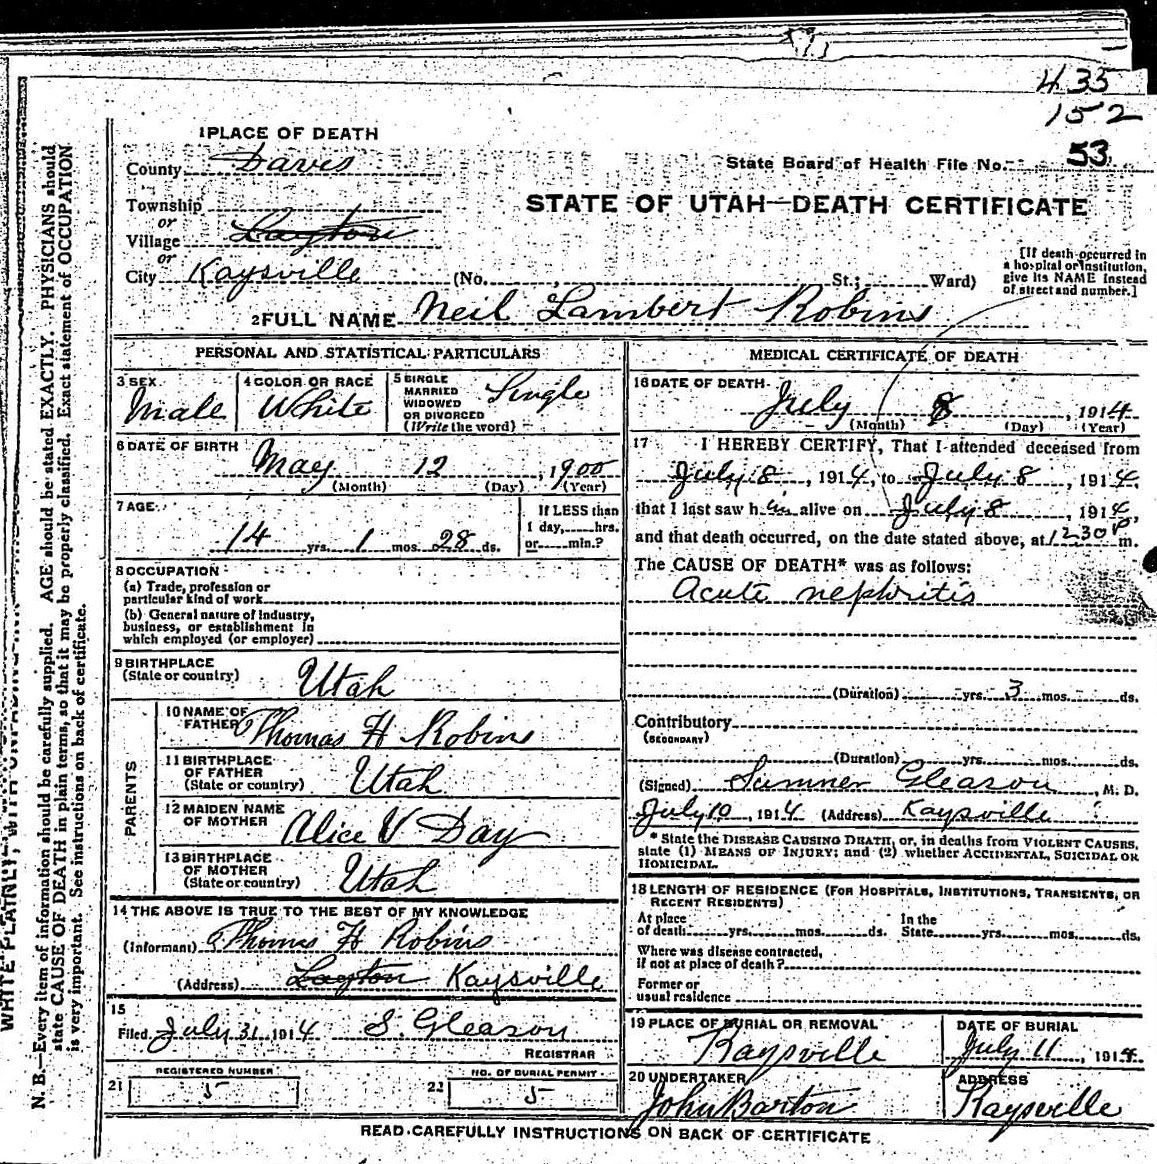 433
152
1 PLACE OF DEATH
County Davis
State Board of Health File No. 53
Township
STATE OF UTAH—DEATH CERTIFICATE
or
Village Layton
or
City Kaysville (No. , St.; Ward)
[If death occurred in a hospital or institution, give its NAME instead of street and number.]
2 FULL NAME Neil Lambert Robins
PERSONAL AND STATISTICAL PARTICULARS
3 SEX Male
4 COLOR OR RACE White
5 SINGLE MARRIED WIDOWED OR DIVORCED (Write the word) Single
6 DATE OF BIRTH May 12, 1900
(Month) (Day) (Year)
7 AGE
14 yrs. 1 mos. 28 ds.
If LESS than 1 day, hrs. or min.?
8 OCCUPATION
(a) Trade, profession or particular kind of work
(b) General nature of industry, business, or establishment in which employed (or employer)
9 BIRTHPLACE
(State or country) Utah
PARENTS
10 NAME OF FATHER Thomas H Robins
11 BIRTHPLACE OF FATHER
(State or country) Utah
12 MAIDEN NAME OF MOTHER Alice V Day
13 BIRTHPLACE OF MOTHER
(State or country) Utah
14 THE ABOVE IS TRUE TO THE BEST OF MY KNOWLEDGE
(Informant) Thomas H Robins
(Address) Layton Kaysville
15
Filed July 31, 1914 S. Gleason
REGISTRAR
21 REGISTERED NUMBER
5
22 NO. OF BURIAL PERMIT
5
MEDICAL CERTIFICATE OF DEATH
16 DATE OF DEATH
July 8, 1914
(Month) (Day) (Year)
17 I HEREBY CERTIFY, That I attended deceased from
July 8, 1914, to July 8, 1914,
that I last saw him alive on July 8, 1914,
and that death occurred, on the date stated above, at 1230 P m.
The CAUSE OF DEATH* was as follows:
Acute nephritis
(Duration) yrs. 3 mos. ds.
Contributory
(SECONDARY)
(Duration) yrs. mos. ds.
(Signed) Sumner Gleason, M. D.
July 10, 1914 (Address) Kaysville
* State the DISEASE CAUSING DEATH, or, in deaths from VIOLENT CAUSES,
state (1) MEANS OF INJURY; and (2) whether ACCIDENTAL, SUICIDAL OR
HOMICIDAL.
18 LENGTH OF RESIDENCE (FOR HOSPITALS, INSTITUTIONS, TRANSIENTS, OR
RECENT RESIDENTS)
At place of death yrs. mos. ds. In the State yrs. mos. ds.
Where was disease contracted,
if not at place of death?
Former or
usual residence
19 PLACE OF BURIAL OR REMOVAL
Kaysville
DATE OF BURIAL
July 11, 1914
20 UNDERTAKER
John Barton
ADDRESS
Kaysville
READ CAREFULLY INSTRUCTIONS ON BACK OF CERTIFICATE
WRITE PLAINLY, WITH
N. B.—Every item of information should be carefully supplied. AGE should be stated EXACTLY. PHYSICIANS should
state CAUSE OF DEATH in plain terms, so that it may be properly classified. Exact statement of OCCUPATION
is very important. See instructions on back of certificate.